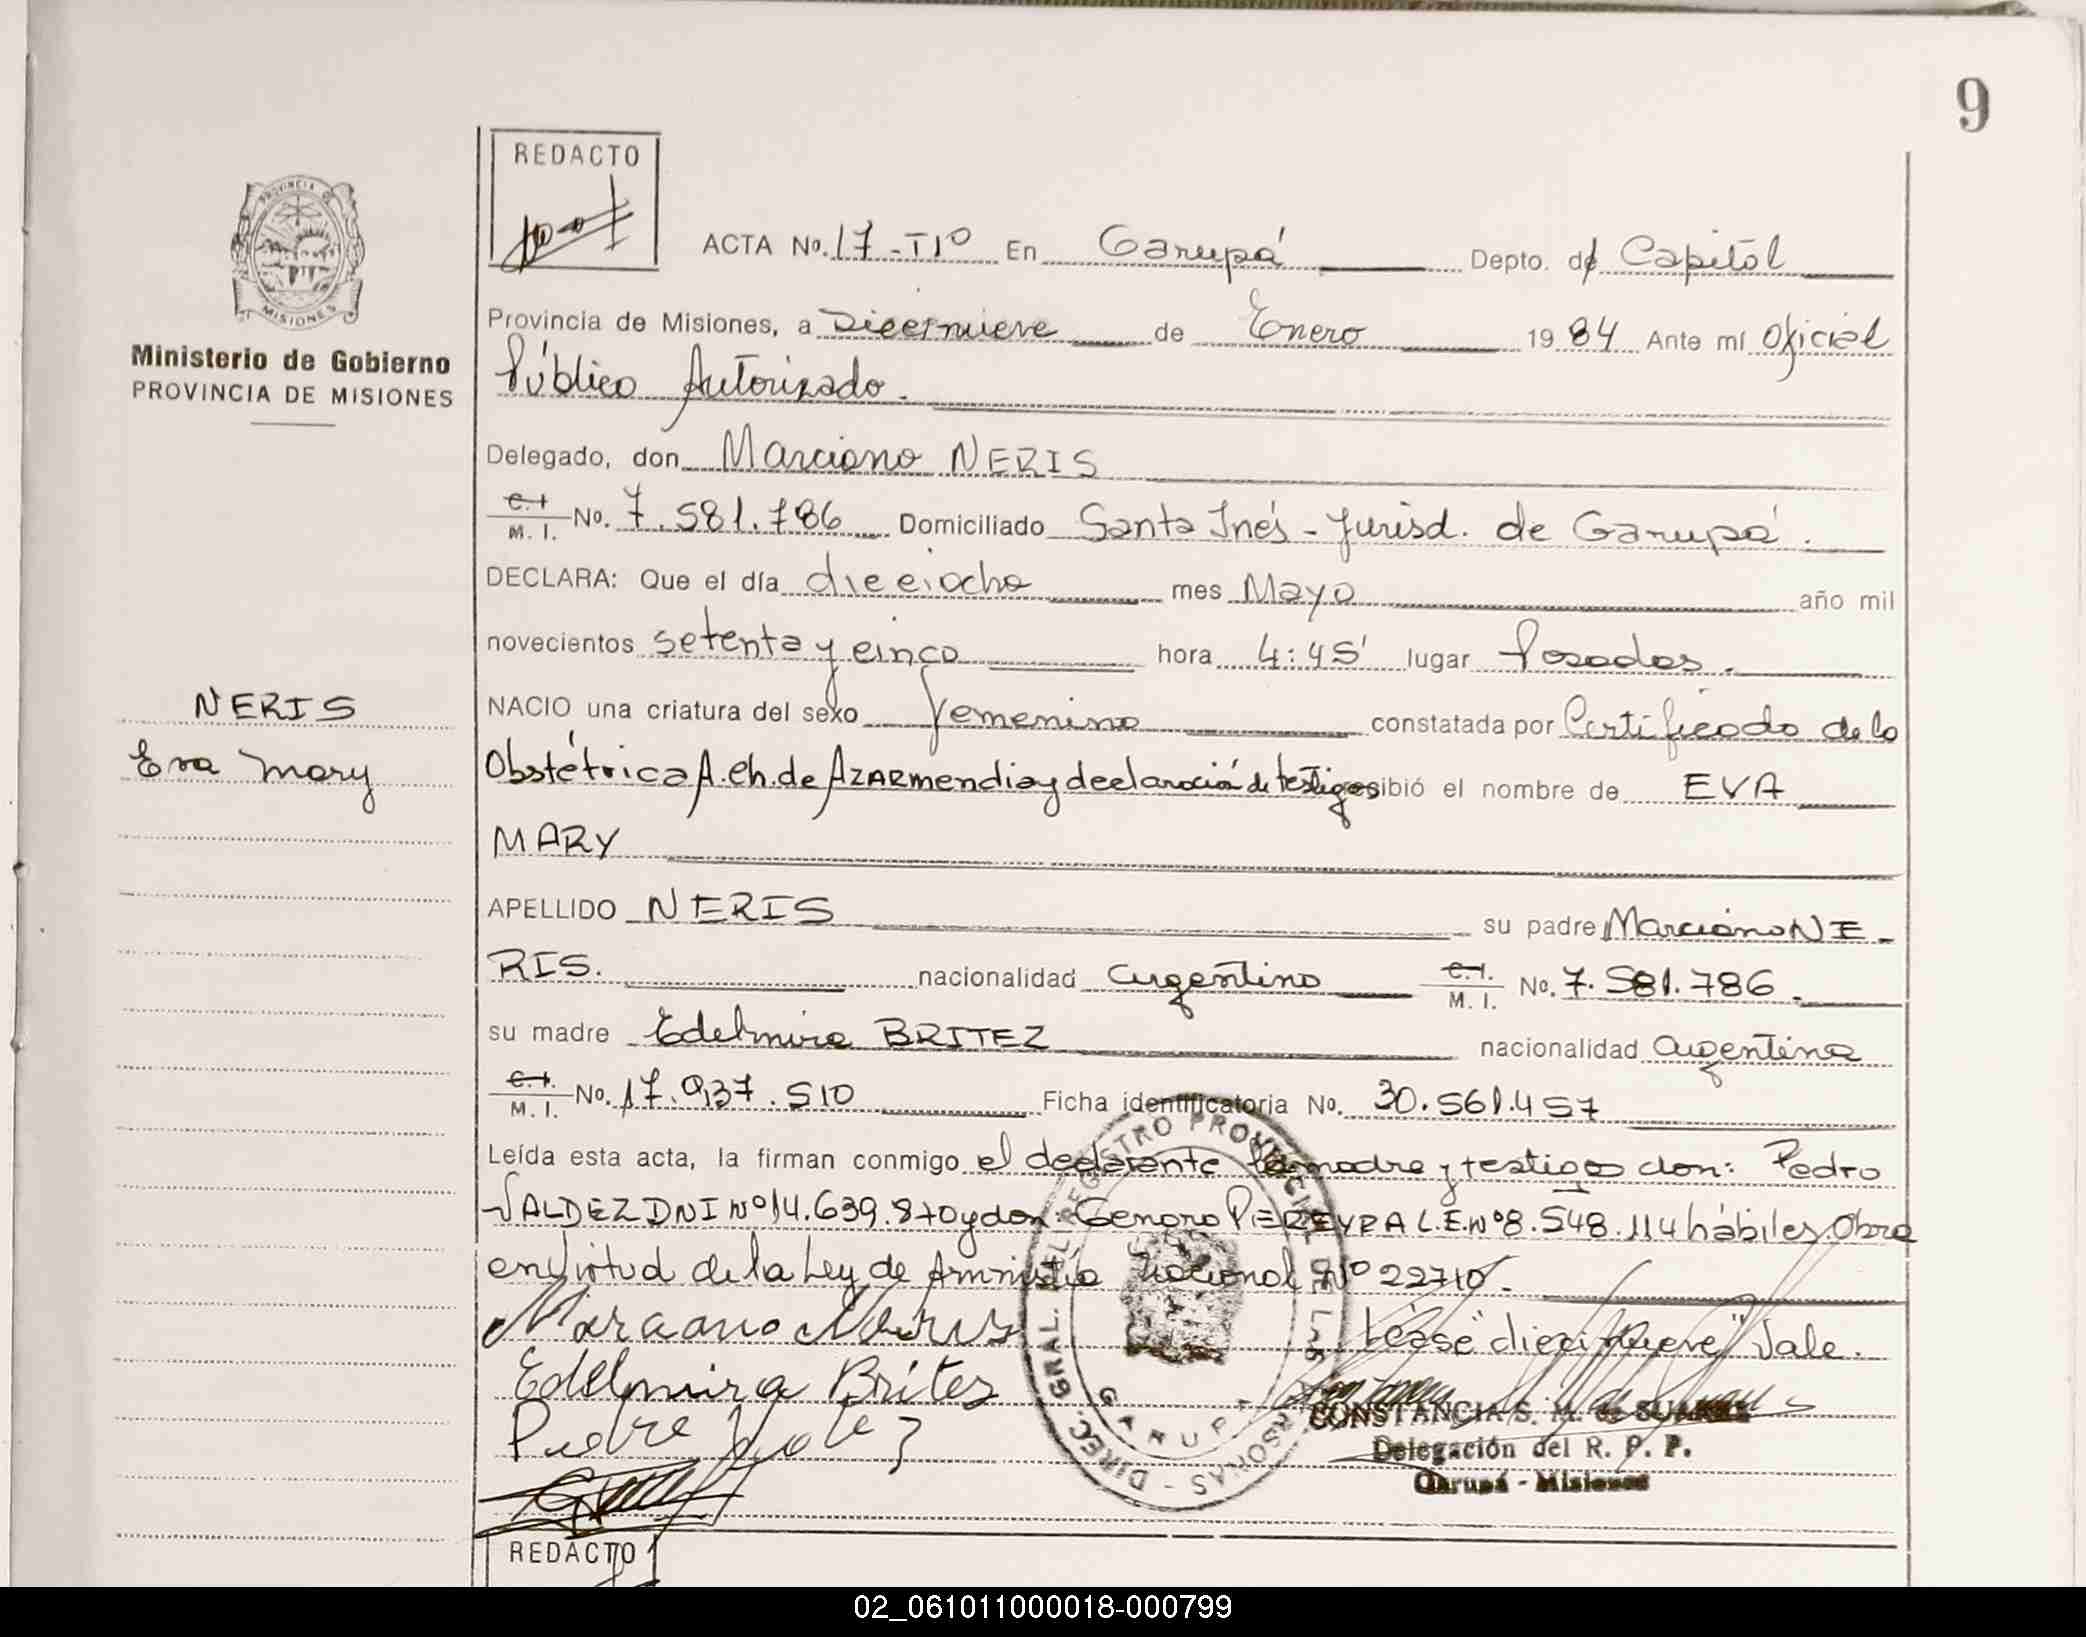 9
REDACTO
ACTA No. 17-TIº En Garupá Depto. de Capital
PROVINCIA DE
MISIONES
Ministerio de Gobierno
PROVINCIA DE MISIONES
Provincia de Misiones, a Diecinueve de Enero 1984 Ante mí Oficial
Público Autorizado.
Delegado, don Marciano NERIS
C.I. M. I. No. 7.581.786 Domiciliado Santa Inés - Jurisd. de Garupá.
DECLARA: Que el día dieciocho mes Mayo año mil
novecientos setenta y cinco hora 4:45' lugar Posadas.
NERIS
Eva Mary
NACIO una criatura del sexo femenino constatada por Certificado de la
Obstétrica A. Ch. de AZARmendia y declaración de testigos ibió el nombre de EVA
MARY
APELLIDO NERIS su padre Marciano NE-
RIS. nacionalidad argentino C.I. M. I. No. 7.581.786.
su madre Edelmira BRITEZ nacionalidad argentina
C.I. M. I. No. 17.937.510 Ficha identificatoria No. 30.561.457
Leída esta acta, la firman conmigo el declarante la madre y testigos don: Pedro
VALDEZ DNI Nº 14.639.870 y don: Genaro PEREYRA L.E. Nº 8.548.114 hábiles. Obra
en virtud de la Ley de Amnistía Nacional Nº 22710.
Marciano Neris
Léase "diecinueve" Vale.
Edelmira Brites
CONSTANCIA S. M. de
Delegación del R. P. P.
Garupá - Misiones
DIREC. GRAL. DEL REGISTRO PROVINCIAL DE LAS PERSONAS -
GARUPA
REDACTO
02_061011000018-000799